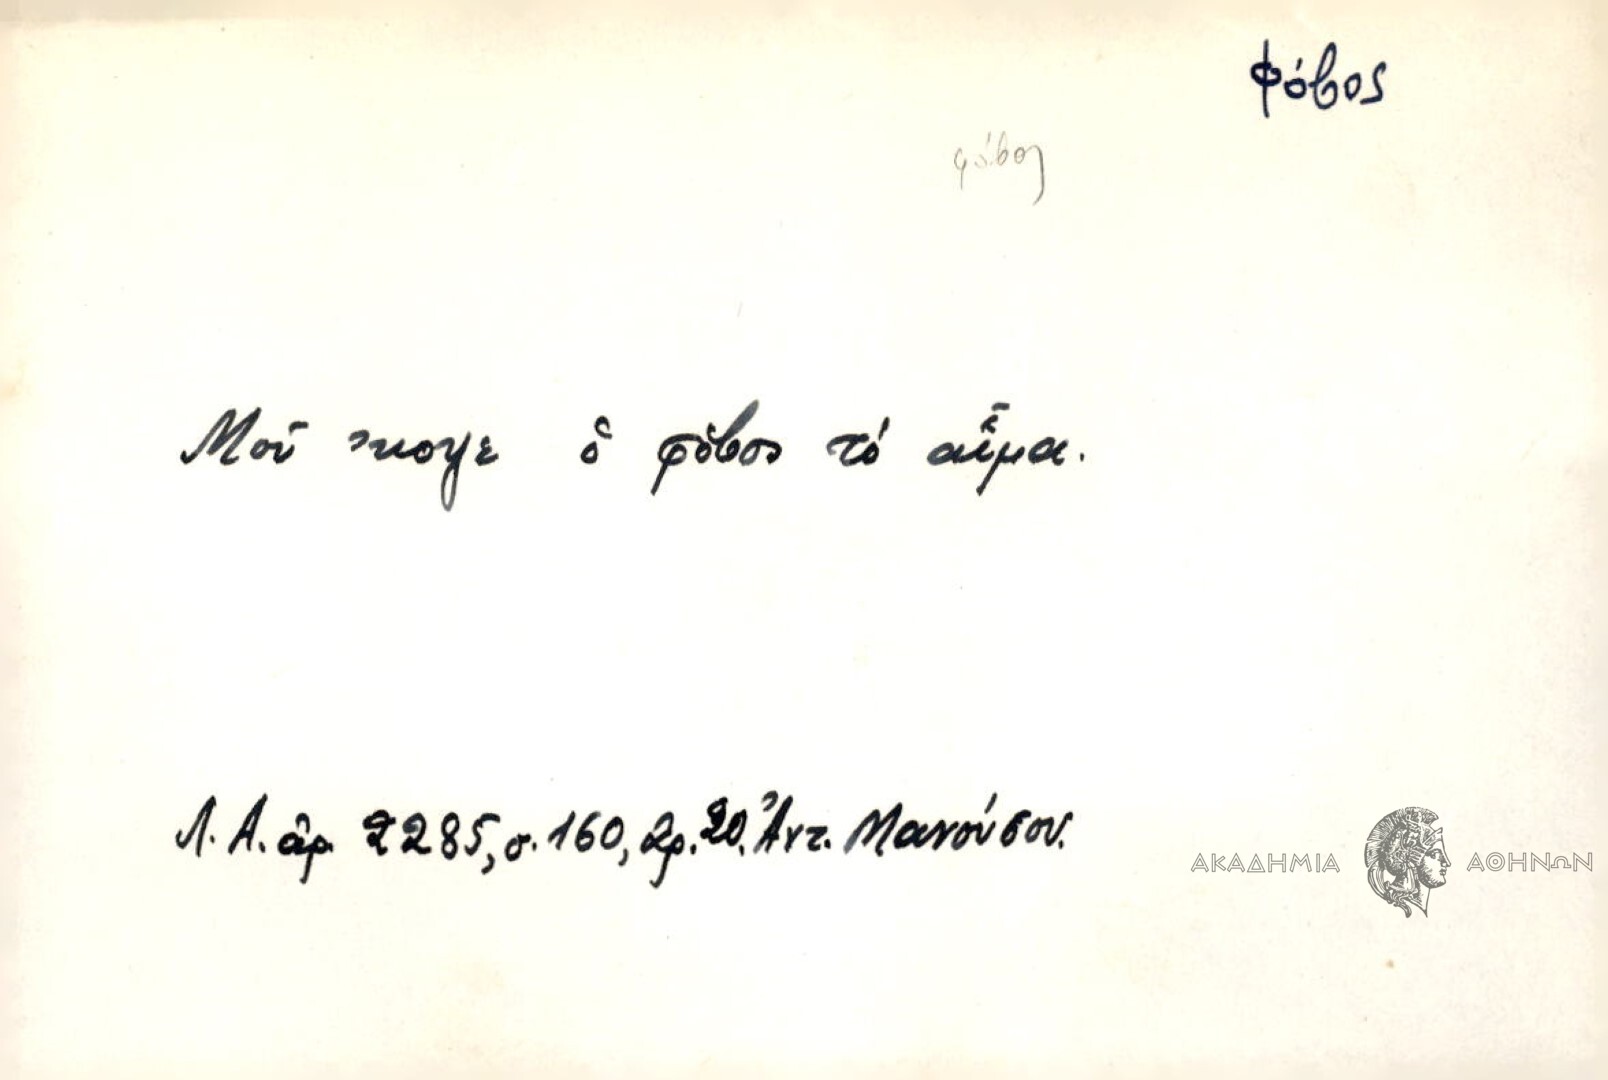 Φόβος
φόβος
Μοῦ 'κοψε ὁ φόβος τό αἷμα.
Λ. Α. ἀρ. 2285, σ. 160, ἀρ. 20. Ἀντ. Μανούσου.
ΑΚΑΔΗΜΙΑ ΑΘΗΝΩΝ